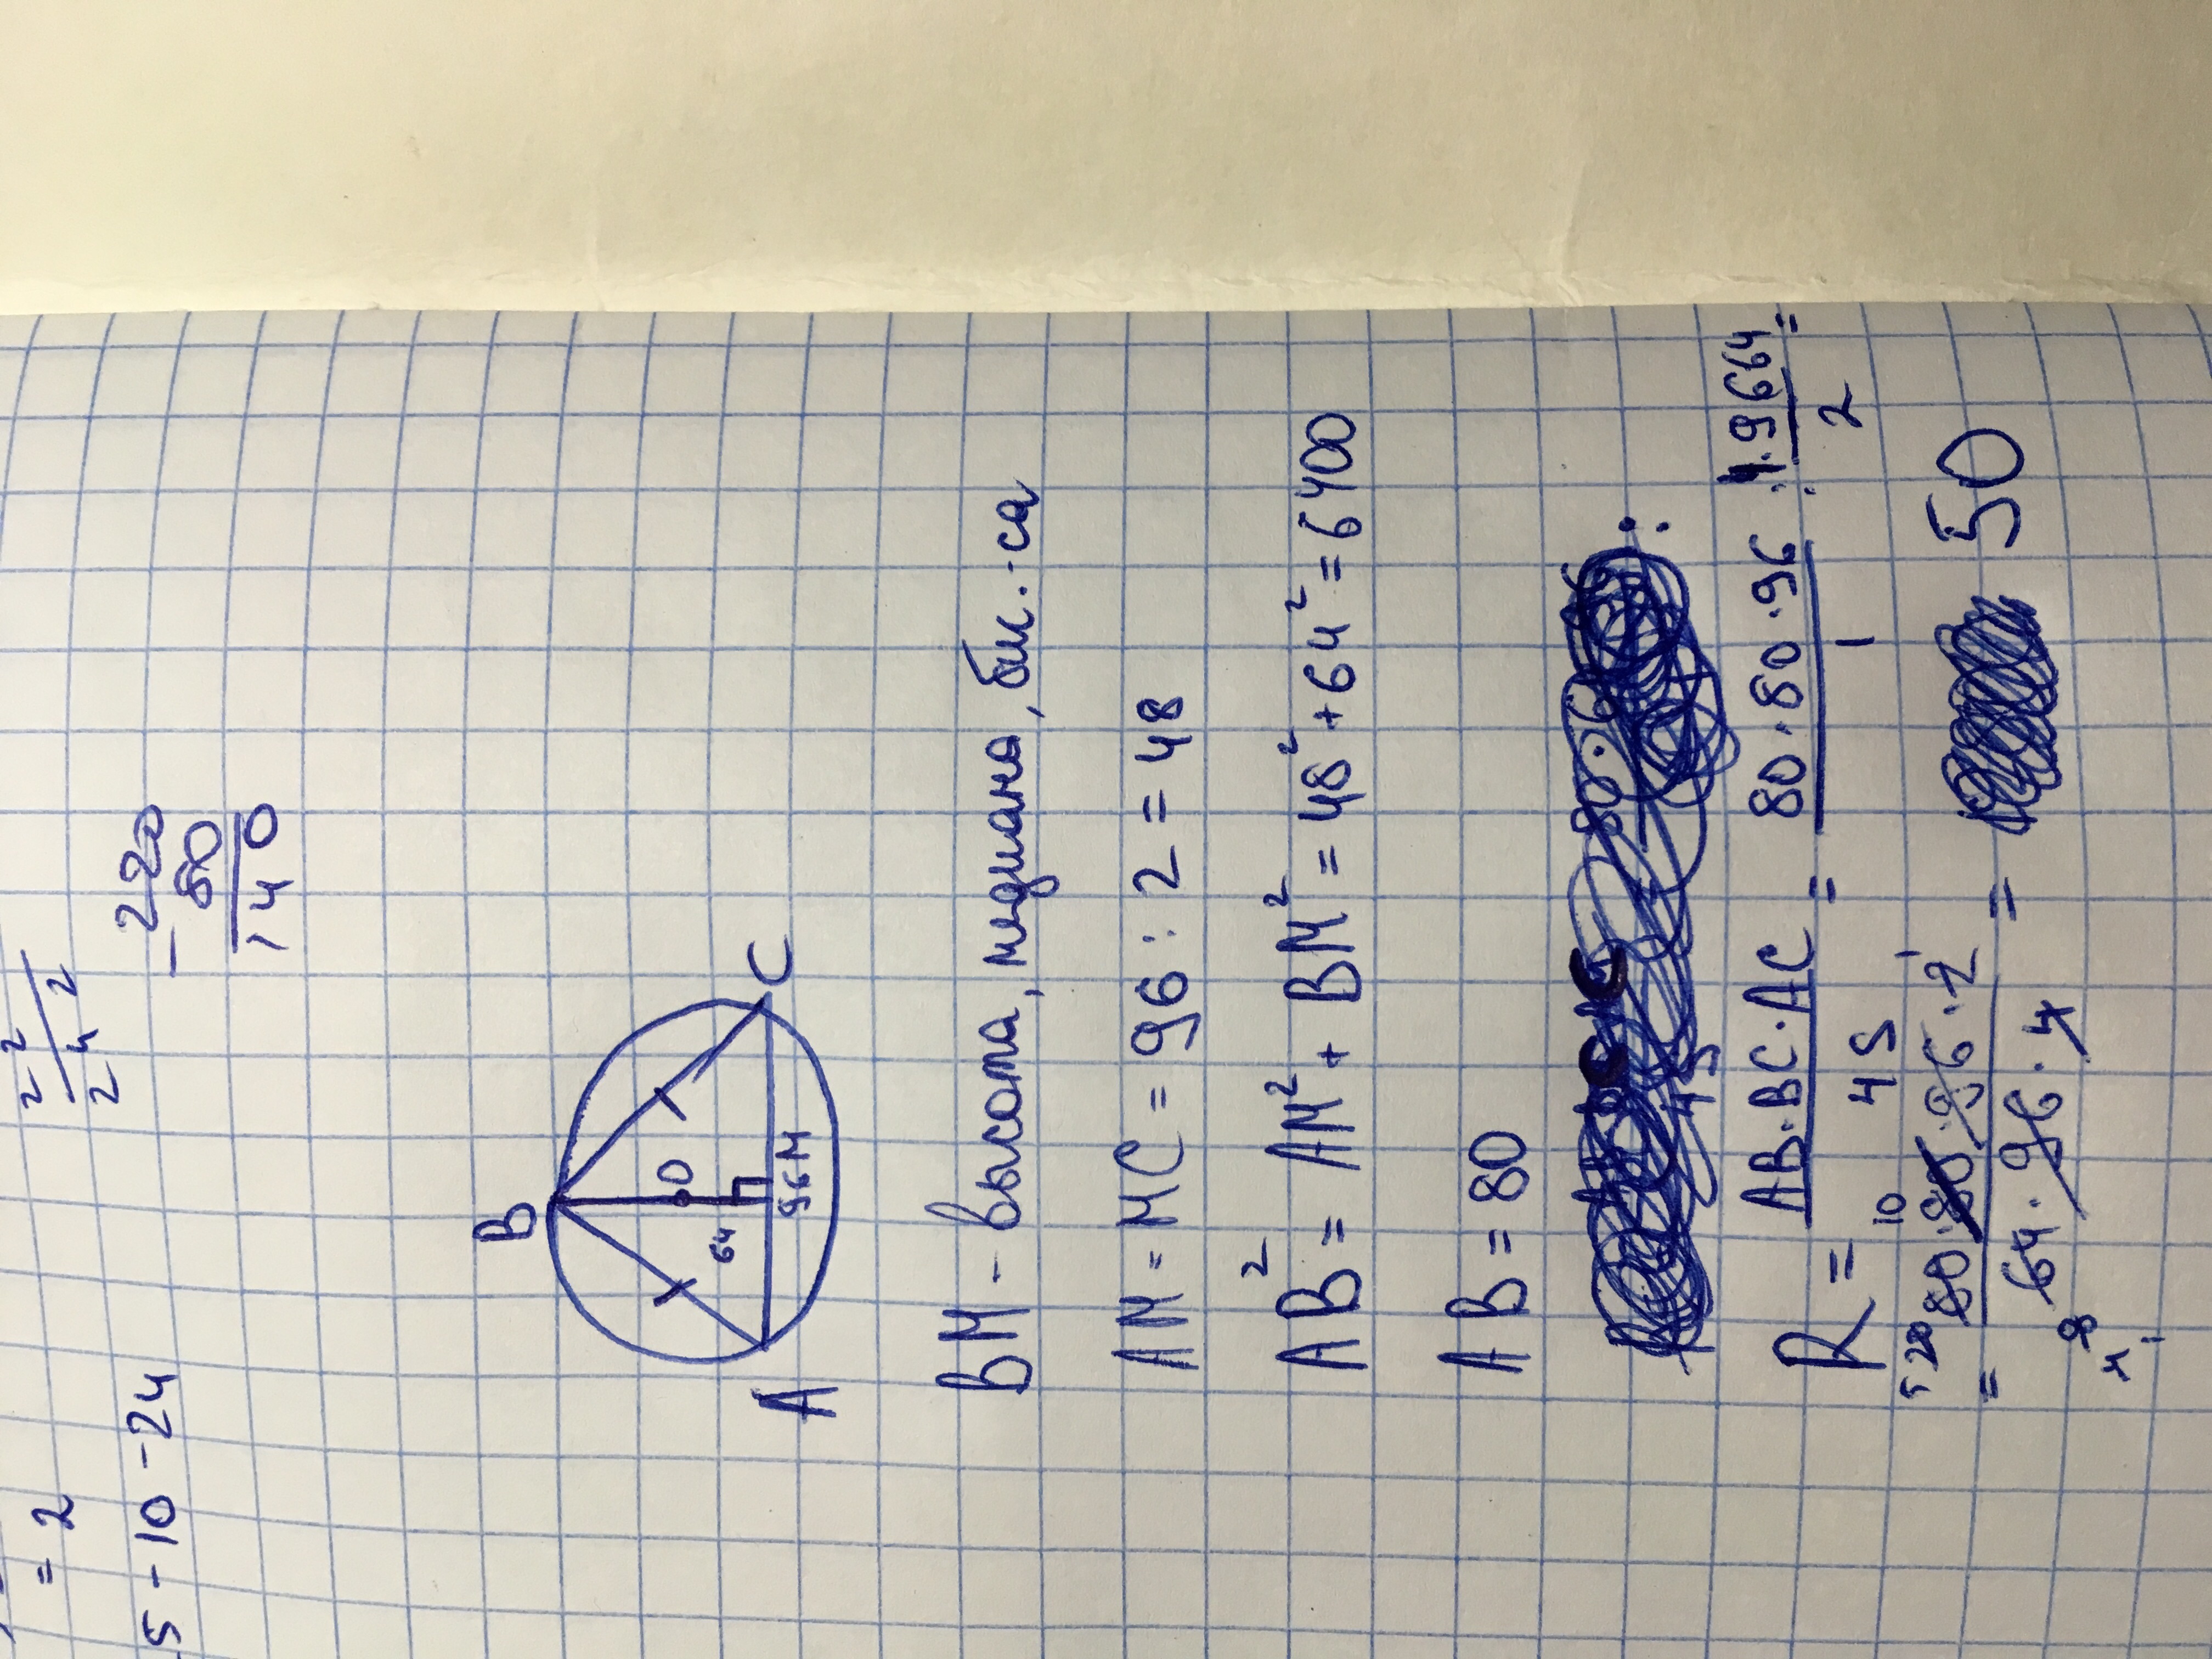 = 2
2 2
2 4 2
5 - 10 - 24
- 220
80
140
B
O
64
96 M
A
C
BM - высота, медиана, бис.-са
AM = MC = 96 : 2 = 48
AB² = AM² + BM² = 48² + 64² = 6400
AB = 80
4S
:
R = AB·BC·AC / 4S = 80·80·96 / 1 : 4·96 64 / 2 =
5 20 10 1
= 80·80·96·2 / 64·96·4 = 50
8
4
1